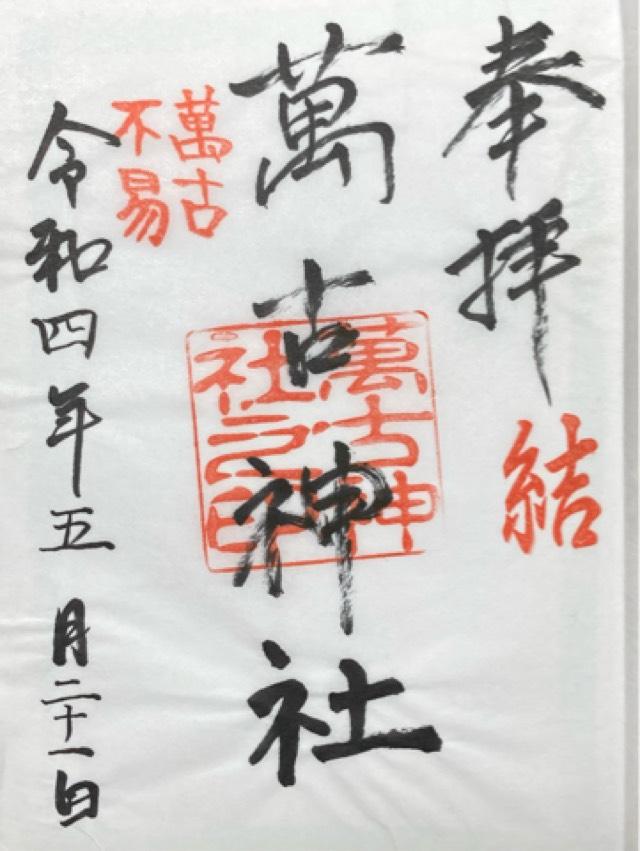 奉拝
結
萬古神社
萬古神
社之印
萬古
不易
令和四年五月二十一日